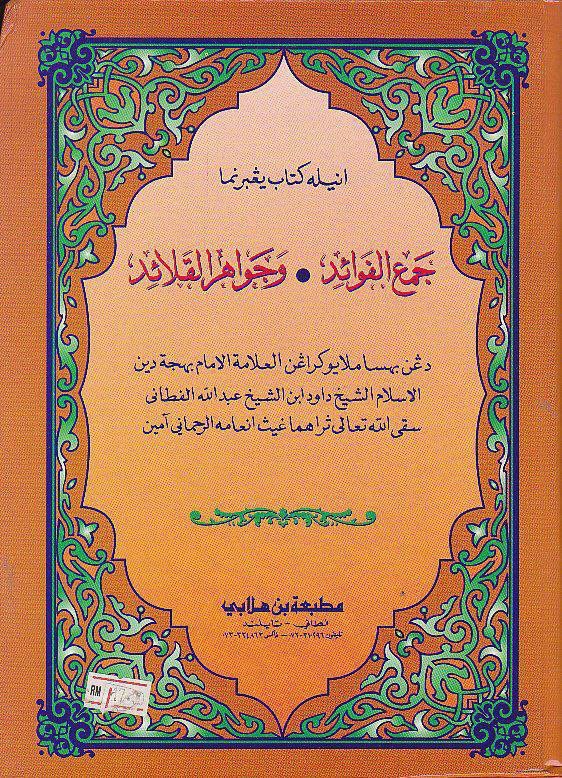 انيله کتاب يڠبرنما
جمع الفوائد • وجواهر القلائد
دڠن بهسا ملايو كراڠن العلامة الامام بهجة دين
الاسلام الشيخ داود ابن الشيخ عبد الله الفطاني
سقى الله تعالى ثراهما غيث انعامه الرحماني آمين
مطبعة بن هلابي
فطاني - تايلند
RM